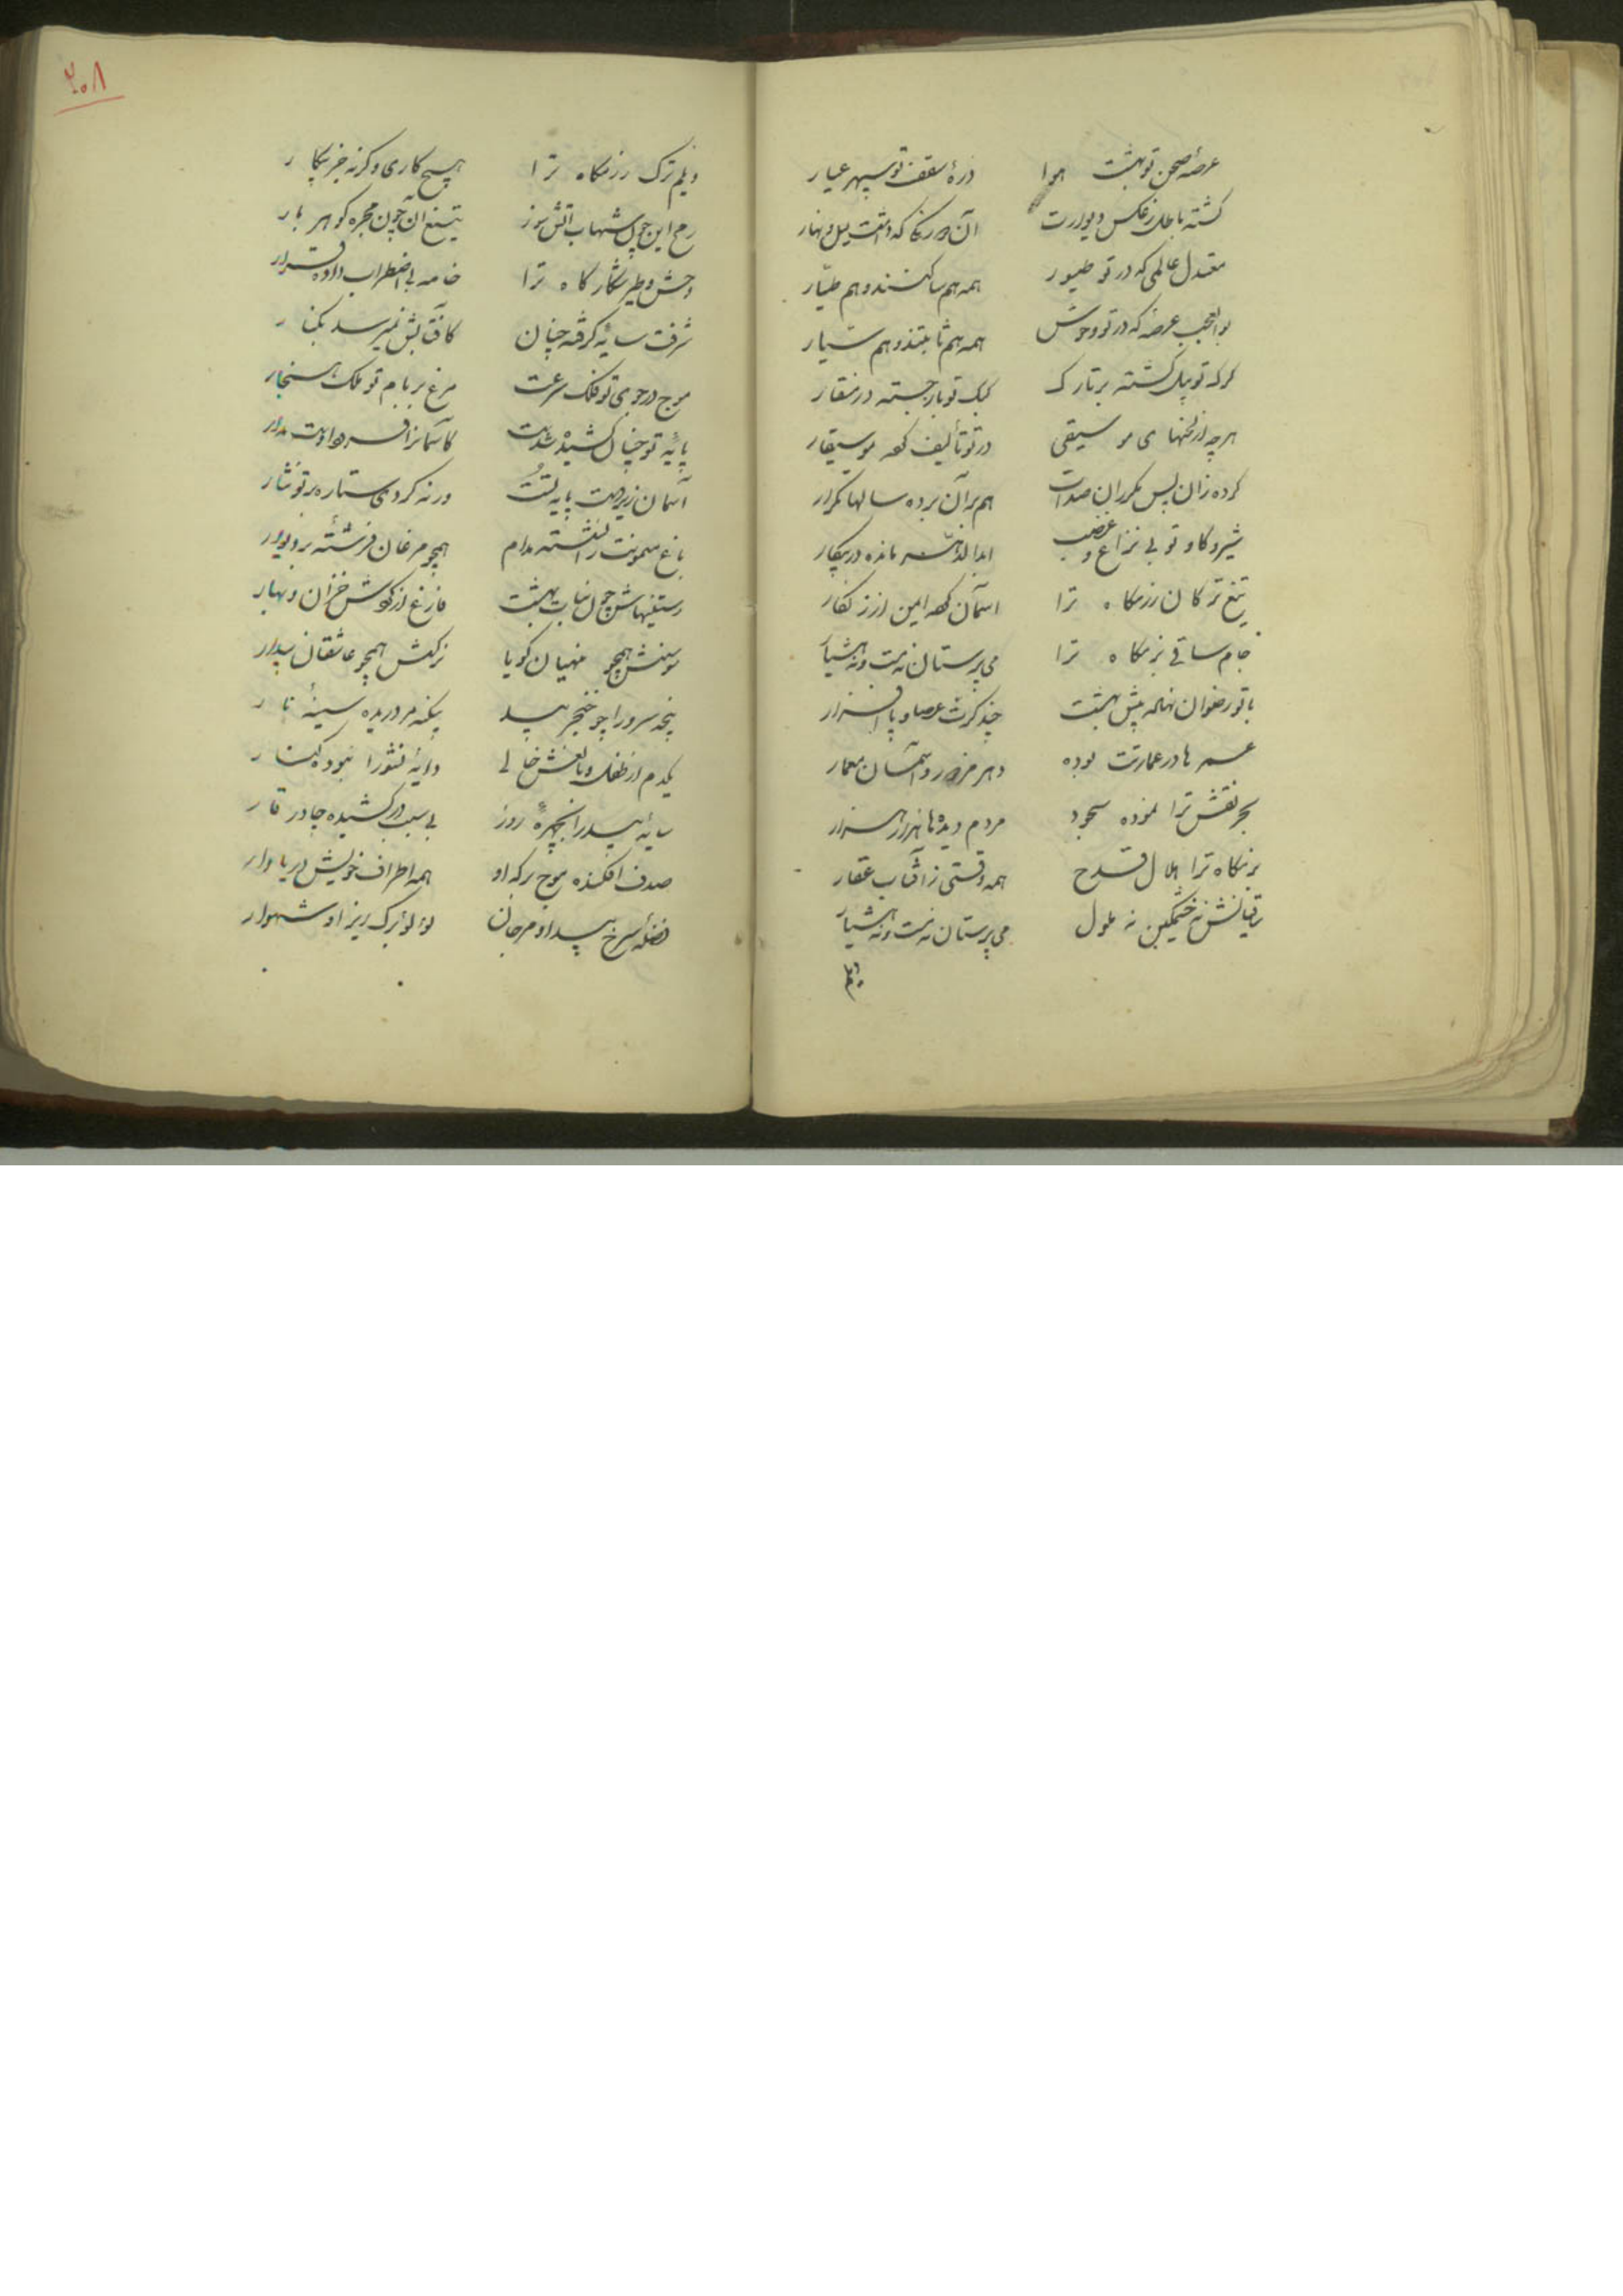 عرصهٔ صحن تو بهشت هوا ذرهٔ سقف تو سپهر عیار
گشته باطل ز عکس دیوارت آن دو رنگی که داشت لیل و نهار
معتدل عالمی که در تو طیور همه هم ساکنند و هم طیار
بوالعجب عرصهٔ که در تو وحوش همه هم ثابتند و هم سیار
کرک تو پیل کشته بر تارک کبک تو باز جسته در منقار
هرچه از لحنهای موسیقی در تو تألیف کرده موسیقار
کرده زان پس مکرر آن صدات هم بر آن پرده سالها تکرار
شیر و کاو تو بی نزاع و غضب ابدالدهر مانده در پیکار
تیغ ترکان رزمکاه ترا آسمان کرده ایمن از زنکار
جام ساقی بزمکاه ترا می پرستان نه مست و نه هشیار
با تو رضوان نهاده پیش بهشت چند کرت عصا و پا افزار
عمرها در عمارتت بوده دهر مزدور و آسمان معمار
بحر نقش ترا نموده سجود مردم دیدها هزار هزار
بزمکاه ترا هلال قدح همه وقتی ز آفتاب عقار
ساقیانش نه خشمکین نه ملول می پرستان نه مست و نه هشیار
دیلم
۲۰۸
دیلم و ترک رزمکاه ترا هیچ کاری دکر نه جز پیکار
رمح این چون شهاب آتش سوز تیغ آن چون مجره کوهر بار
وحش و طیر شکارکاه ترا خامه بی اضطراب داده قرار
شرفت سایهٔ کرفته چنان کافتابش نمیرسد بکنار
موج در جوی تو فلک سرعت مرغ بر بام تو ملک هنجار
پایهٔ تو چنان کشیده شدست کاسمانرا فرود اوست مدار
آسمان زیر دست پایهٔ تست ورنه کردی ستاره بر تو نثار
باغ میمونت را نشسته مدام همچو مرغان فرشته بر دیوار
رستنیهاش چون نبات بهشت فارغ از کوشش خزان و بهار
سوسنش همچو منهیان کویا نرکسش همچو عاشقان بیدار
پنجهٔ سرو را چو خنجر بید سینهٔ نار
یکدم از طفل و بالغش خالی دایهٔ نشو را نبوده کنار
سایهٔ بید را بچهرهٔ روز بی سبب در کشیده چادر قار
صدف افکنده موج برکهٔ او همه اطراف خویش دریا وار
فضلهٔ سرخ بید او مرجان لؤلؤ برک ریز او شهوار